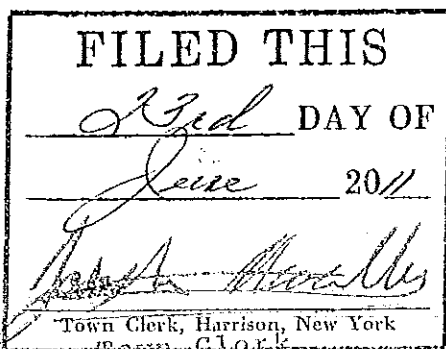 FILED THIS
23rd DAY OF
June 2011
Town Clerk, Harrison, New York
Clerk